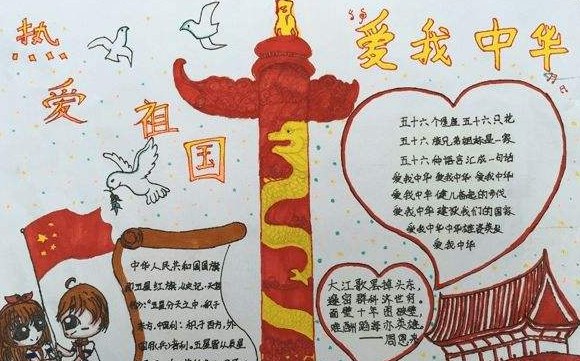 热
爱
祖
国
爱我中华
五十六个星座五十六只花
五十六族兄弟姐妹是一家
五十六种语言汇成一句话
爱我中华 爱我中华 爱我中华
爱我中华 健儿奋起的步伐
爱我中华 建设我们的国家
爱我中华 中华雄姿英发
爱我中华
大江歌罢掉头东,
邃密群科济世穷。
面壁十年图破壁,
难酬蹈海亦英雄。
——周恩来
中华人民共和国国旗
五星红旗,
五星分天之中,积于
东方,中国利;积于西方,外
国用(兵)者利。五星